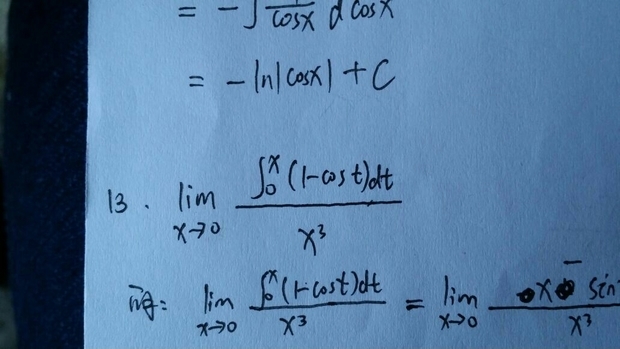 = -∫ 1/cosx d cosx
= -ln|cosx| + C
13. lim x→0 ∫₀ˣ (1-cos t)dt / x³
解: lim x→0 ∫₀ˣ (1-cost)dt / x³ = lim x→0 x - sin / x³